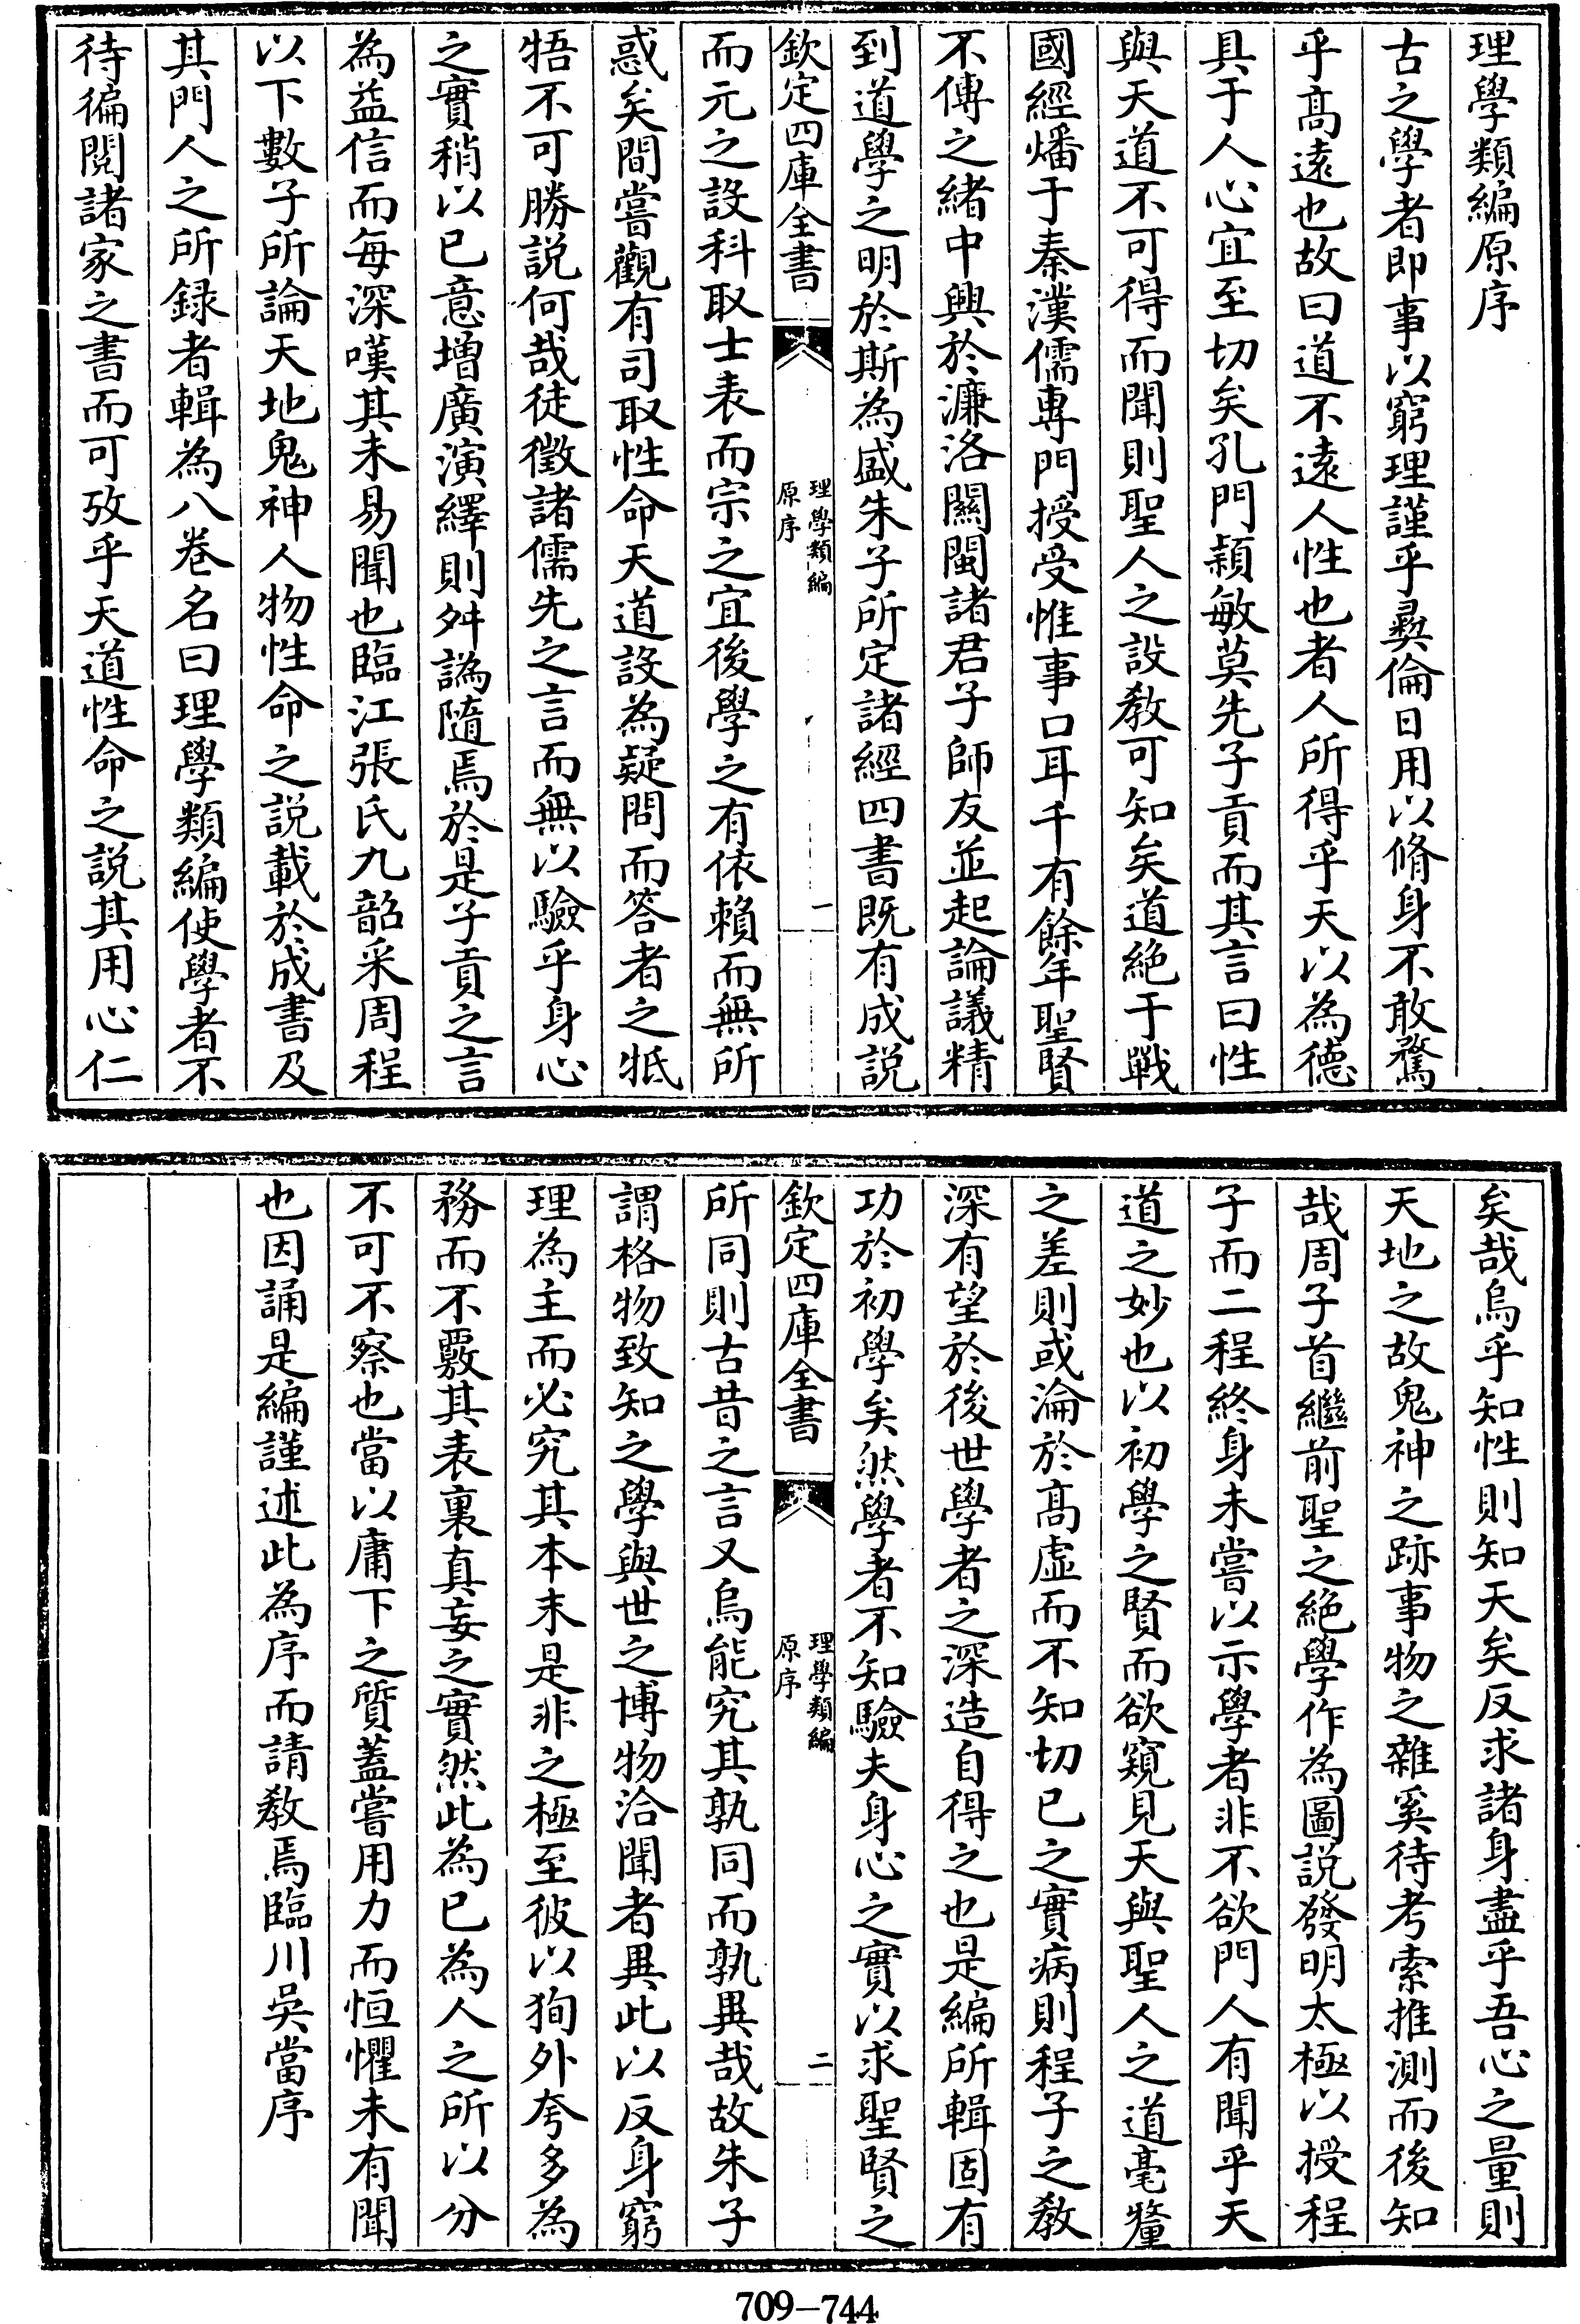 理學類編原序
古之學者即事以窮理謹乎彞倫日用以脩身不敢騖
乎髙逺也故曰道不逺人性也者人所得乎天以為德
具于人心宜至切矣孔門穎敏莫先子貢而其言曰性
與天道不可得而聞則聖人之設教可知矣道絶于戰
國經燔于秦漢儒專門授受惟事口耳千有餘年聖賢
不傳之緒中興於濂洛闗閩諸君子師友並起論議精
到道學之明於斯為盛朱子所定諸經四書既有成説
欽定四庫全書
理學類編
原序
一
而元之設科取士表而宗之宜後學之有依賴而無所
惑矣間嘗觀有司取性命天道設為疑問而答者之牴
牾不可勝説何哉徒徵諸儒先之言而無以驗乎身心
之實稍以已意增廣演繹則舛譌隨焉於是子貢之言
為益信而每深嘆其未易聞也臨江張氏九韶采周程
以下數子所論天地鬼神人物性命之説載於成書及
其門人之所録者輯為八卷名曰理學類編使學者不
待徧閲諸家之書而可攷乎天道性命之説其用心仁
矣哉烏乎知性則知天矣反求諸身盡乎吾心之量則
天地之故鬼神之跡事物之雜奚待考索推測而後知
哉周子首繼前聖之絶學作為圖説發明太極以授程
子而二程終身未嘗以示學者非不欲門人有聞乎天
道之妙也以初學之賢而欲窺見天與聖人之道毫釐
之差則或淪於髙虛而不知切已之實病則程子之教
深有望於後世學者之深造自得之也是編所輯固有
功於初學矣然學者不知驗夫身心之實以求聖賢之
欽定四庫全書
理學類編
原序
二
所同則古昔之言又烏能究其孰同而孰異哉故朱子
謂格物致知之學與世之博物洽聞者異此以反身窮
理為主而必究其本末是非之極至彼以狥外夸多為
務而不覈其表裏真妄之實然此為已為人之所以分
不可不察也當以庸下之質蓋嘗用力而恒懼未有聞
也因誦是編謹述此為序而請教焉臨川吳當序
709–744